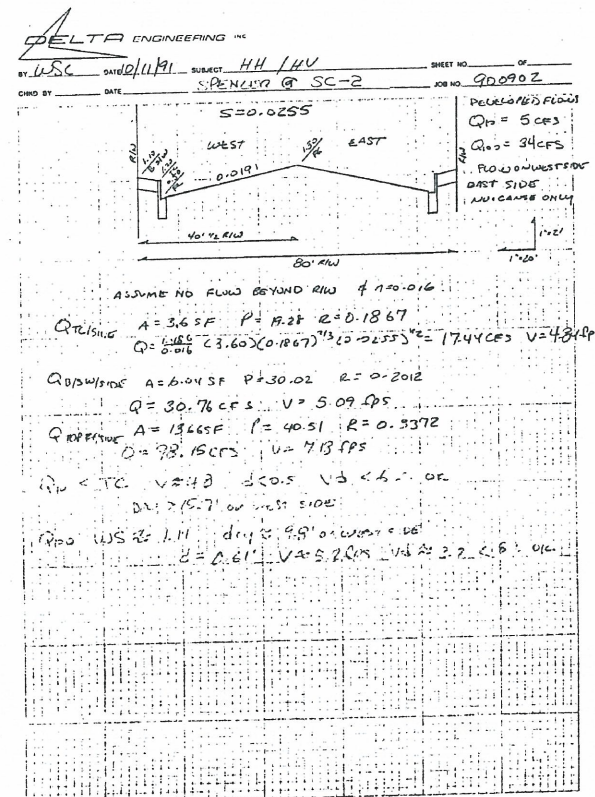 DELTA ENGINEERING INC
BY WSC DATE 10/11/91 SUBJECT HH / HV SHEET NO. OF
CHKD BY DATE SPENCER @ SC-2 JOB NO. 900902
S=0.0255
DEVELOPED FLOWS
Q10 = 5 CFS
Q100 = 34 CFS
FLOW ON WEST SIDE
EAST SIDE
NUICANCE ONLY
R/W
WEST
EAST
R/W
1.10
B SW
1.50
PC
0.0191
40' 1/2 R/W
80' R/W
1"=2'
1"=20'
ASSUME NO FLOW BEYOND R/W & n=0.016
Q TC/SIDE A = 3.6 SF P = 19.28 R = 0.1867
Q = 1.486/0.016 (3.60)(0.1867)^2/3 (0.0255)^1/2 = 17.44 CFS V = 4.84 fp
Q B/SW/SIDE A = 6.04 SF P = 30.02 R = 0.2012
Q = 30.76 CFS V = 5.09 fps
Q TOP A = 13.66 SF P = 40.51 R = 0.3372
Q = 98.15 CFS V = 7.13 FPS
< TC V ≈ 4.8 d<0.5 Vd < 6 ∴ OK
DRY > 15.7' ON WEST SIDE
WS ≈ 1.11 dry ≈ 9.9' on WEST SIDE
d = 0.61' V ≈ 5.2 fps Vd ≈ 3.2 < 6 ∴ o.k.